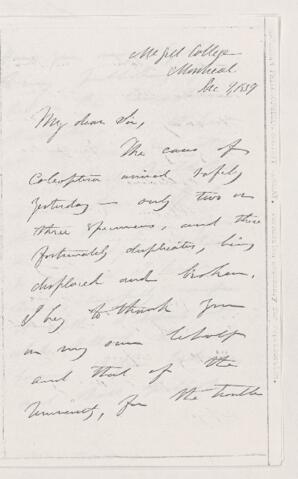 McGill College
Montreal
Dec 9, 1859
My dear Sir,
The cases of
Coleoptera arrived safely
yesterday — only two or
three specimens, and those
fortunately duplicates, being
displaced and broken.
I beg to thank you
on my own behalf
and that of the
University, for the trouble